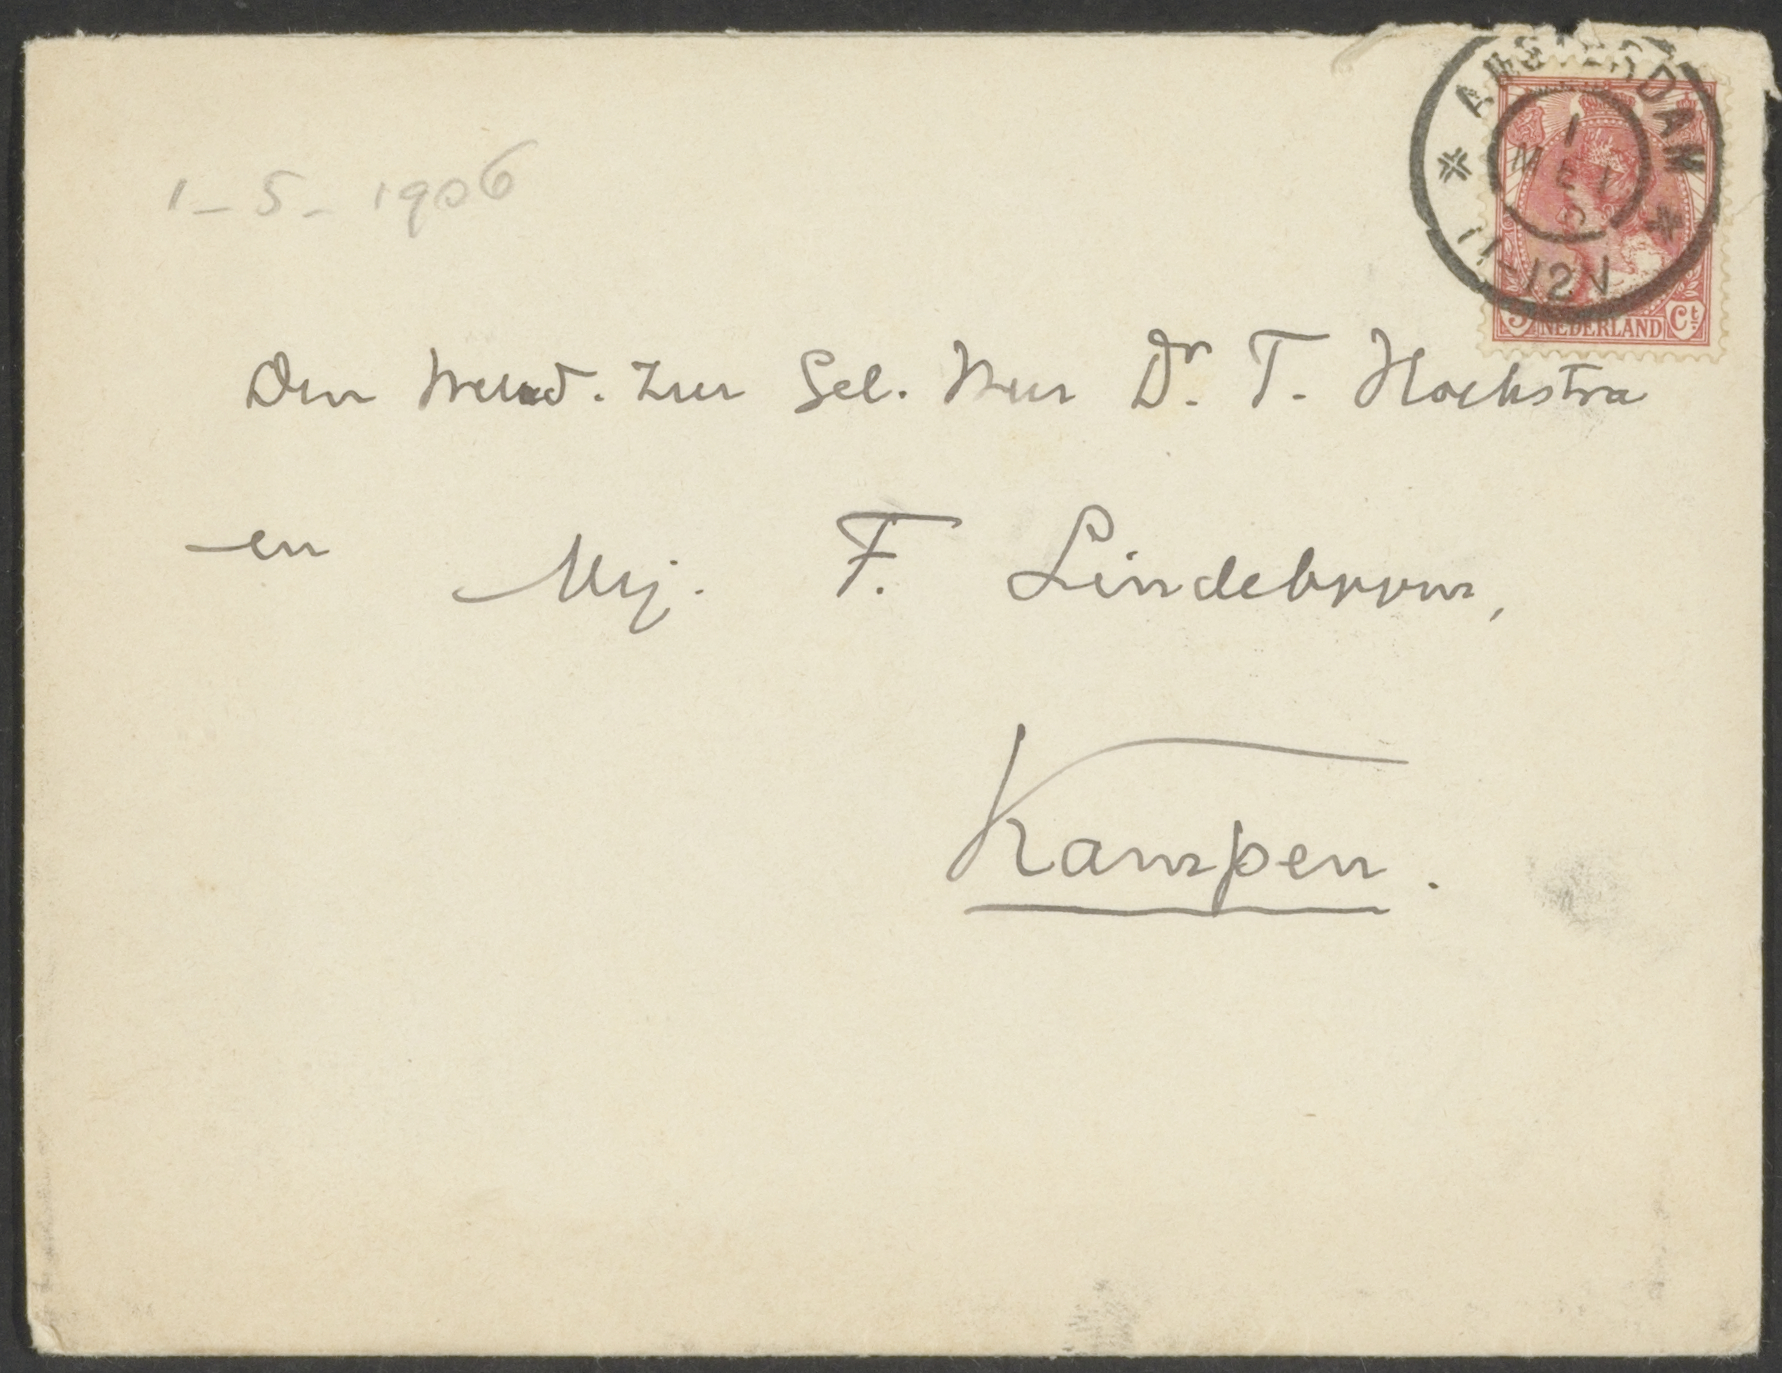 AMSTERDAM
1
MEI
6
11-12N
5 NEDERLAND Ct
1-5-1906
Den Weled. Zeer Gel. Heer Dr. T. Hoekstra
en Mej. F. Lindeboom,
Kampen.